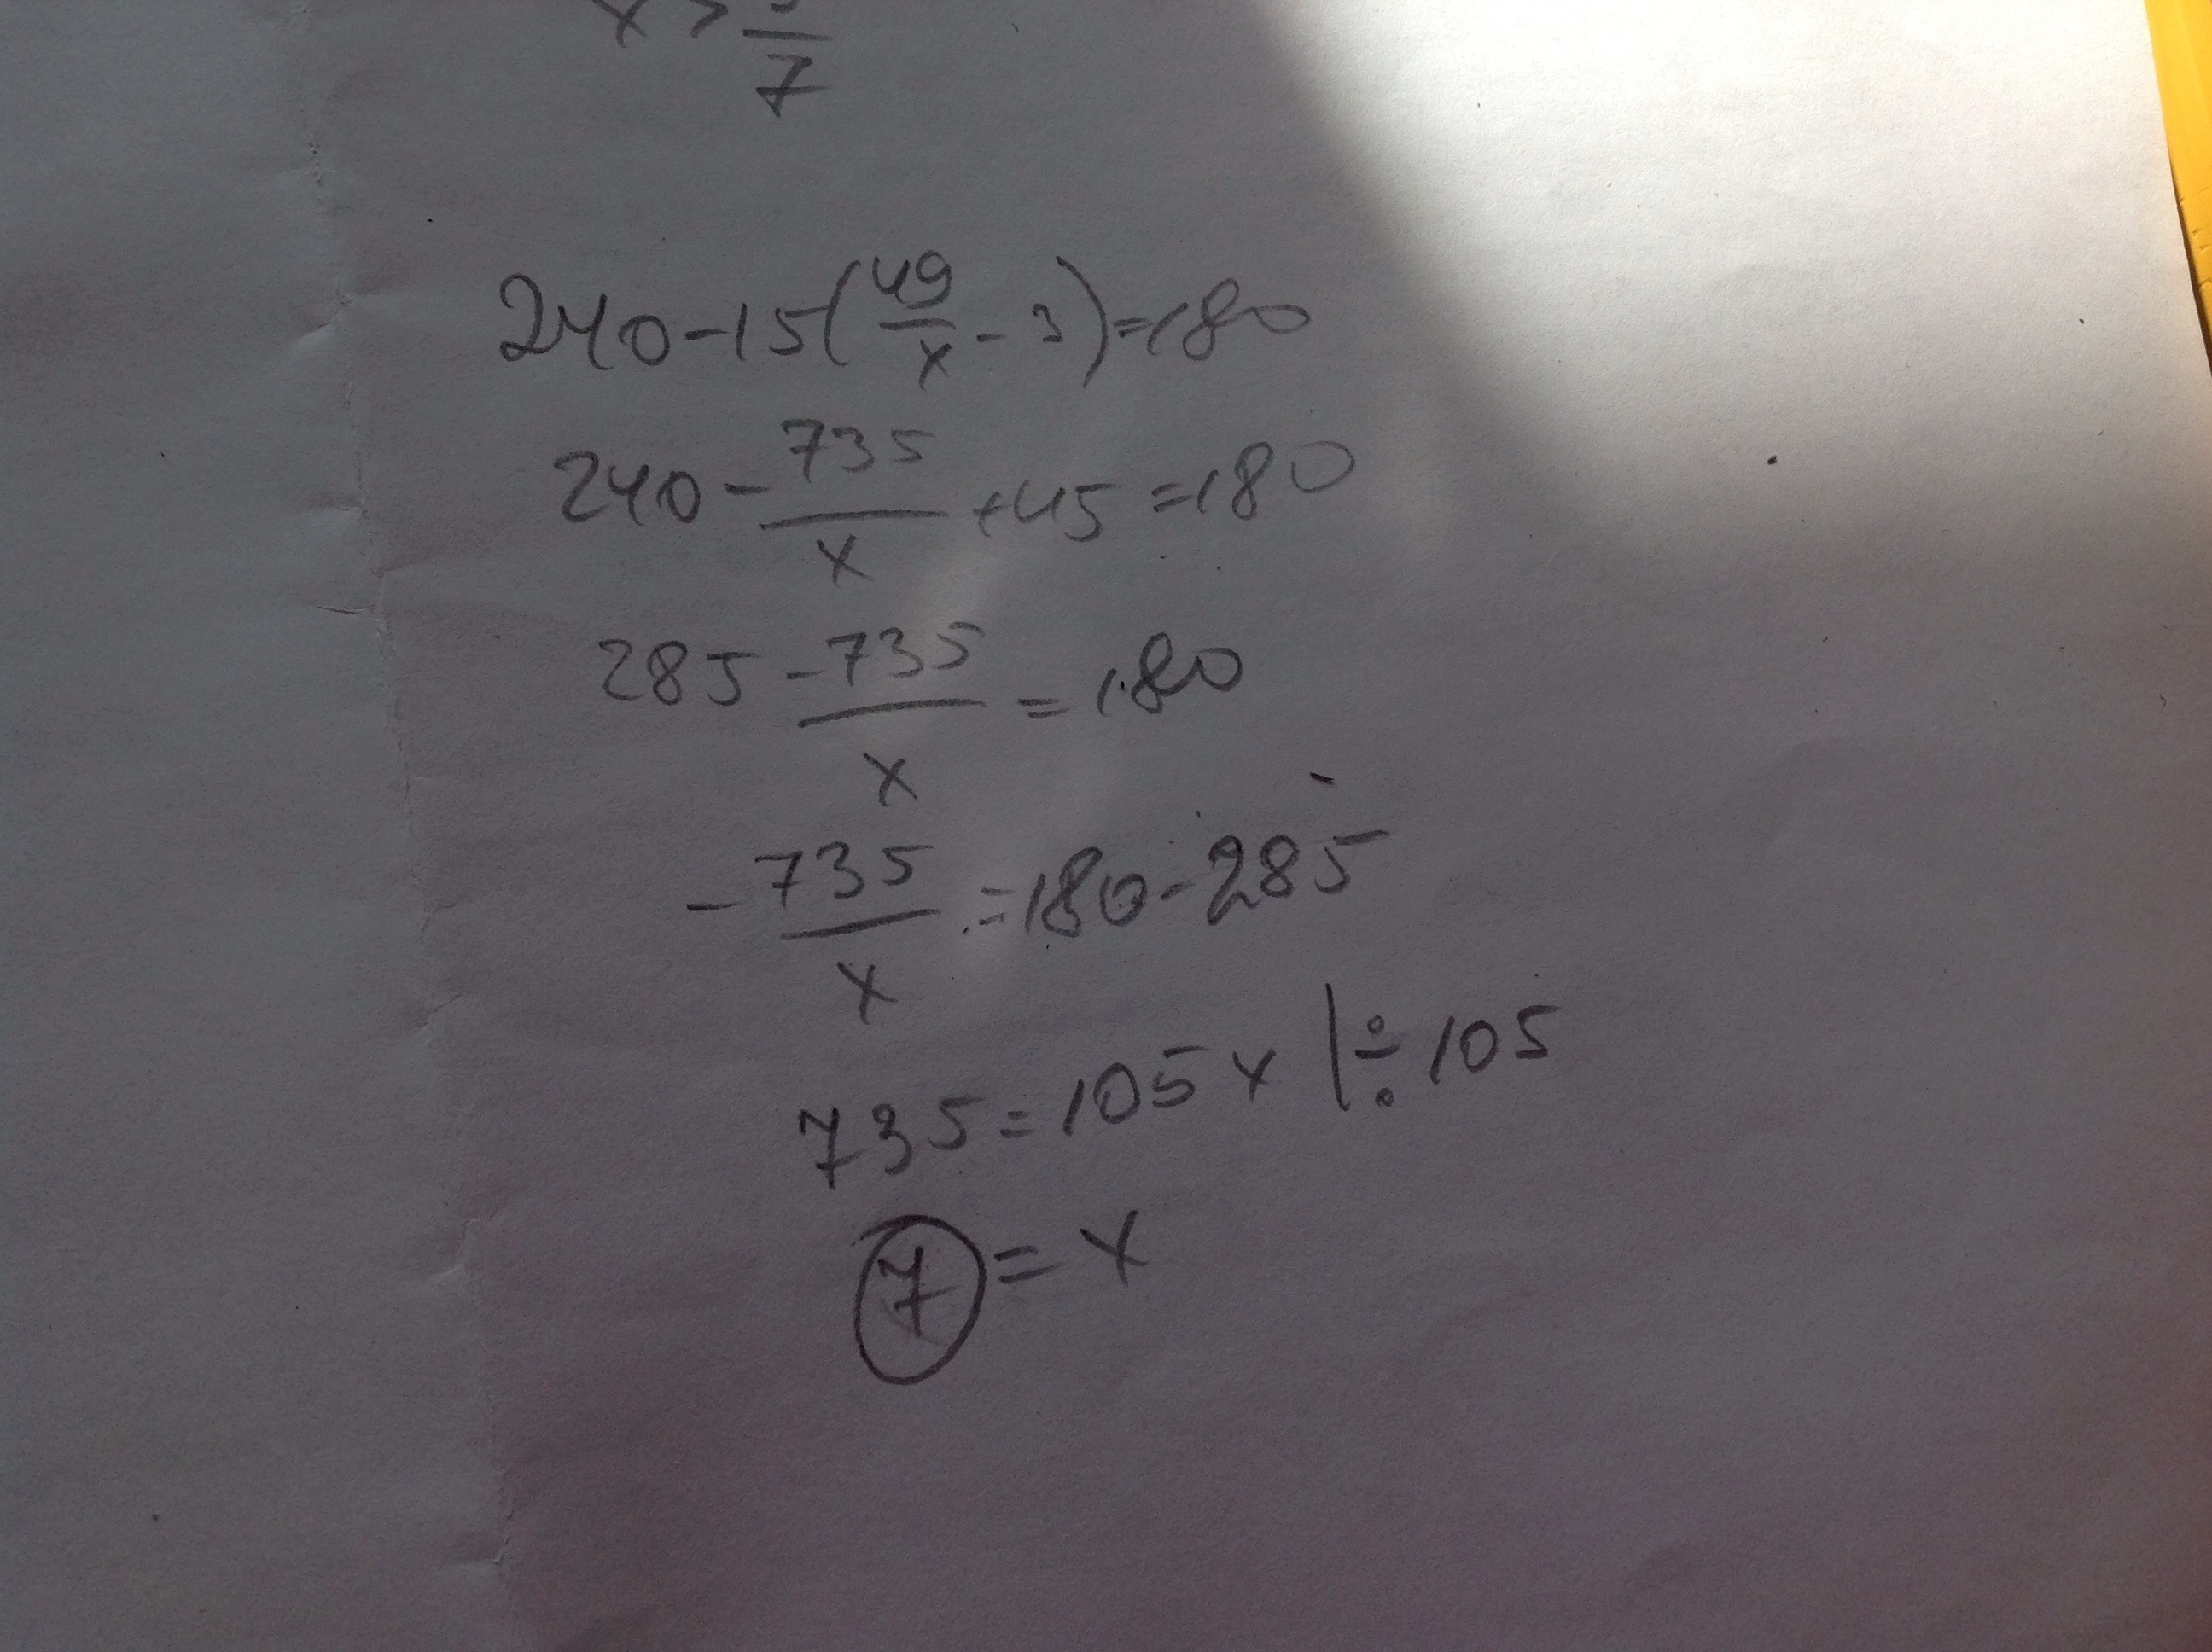 x > —/7
240-15(49/x - 3)=180
240 - 735/x +45 =180
285 - 735/x = 180
- 735/x = 180-285
735=105x |÷105
7 = x